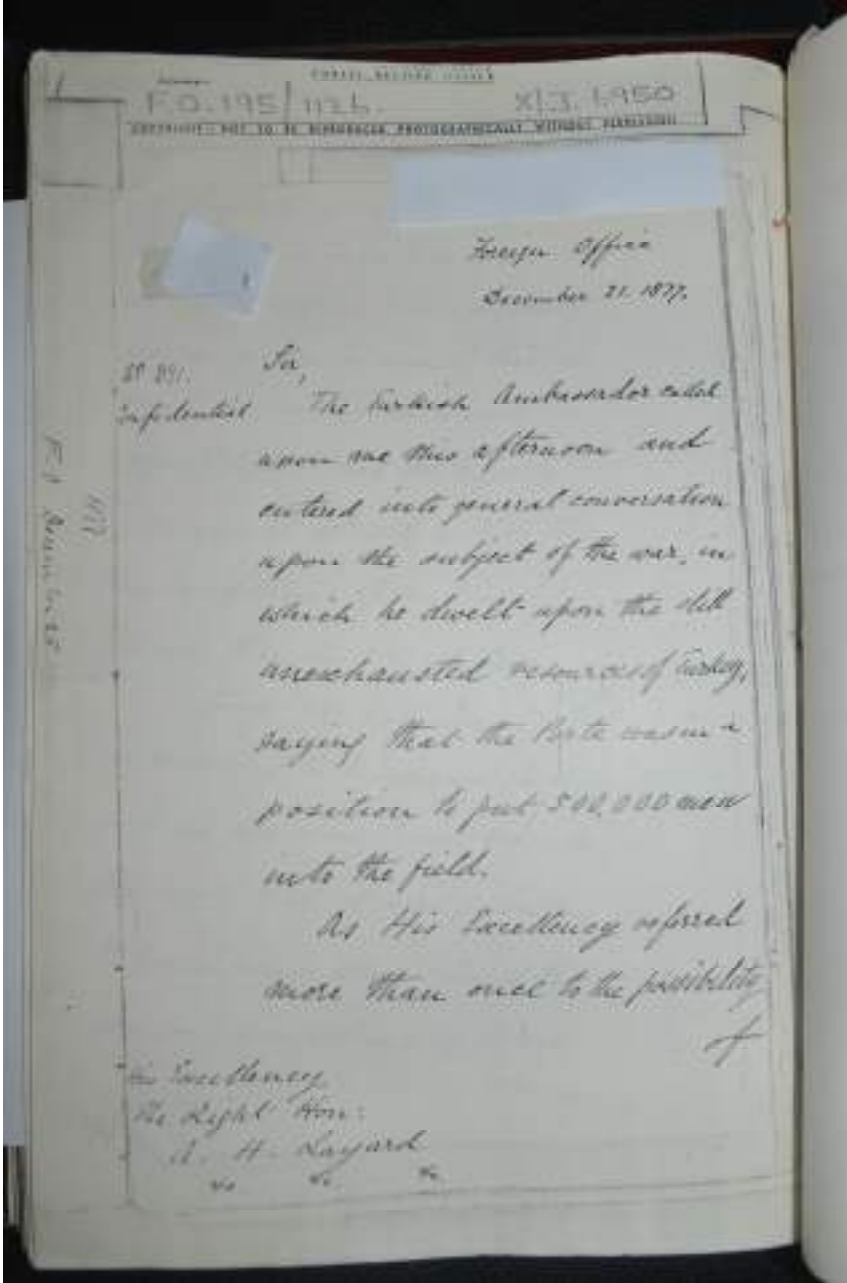 F.O. 195/1126. XL.J. 1950
COPYRIGHT - NOT TO BE REPRODUCED PHOTOGRAPHICALLY WITHOUT PERMISSION
Foreign Office
December 21. 1877.
No 891.
Confidential
Sir,
The Turkish Ambassador called
upon me this afternoon and
entered into general conversation
upon the subject of the war, in
which he dwelt upon the still
unexhausted resources of Turkey,
saying that the Porte was in a
position to put 500,000 men
into the field.
As His Excellency referred
more than once to the possibility
of
His Excellency
The Right Hon:
A. H. Layard
&c &c &c